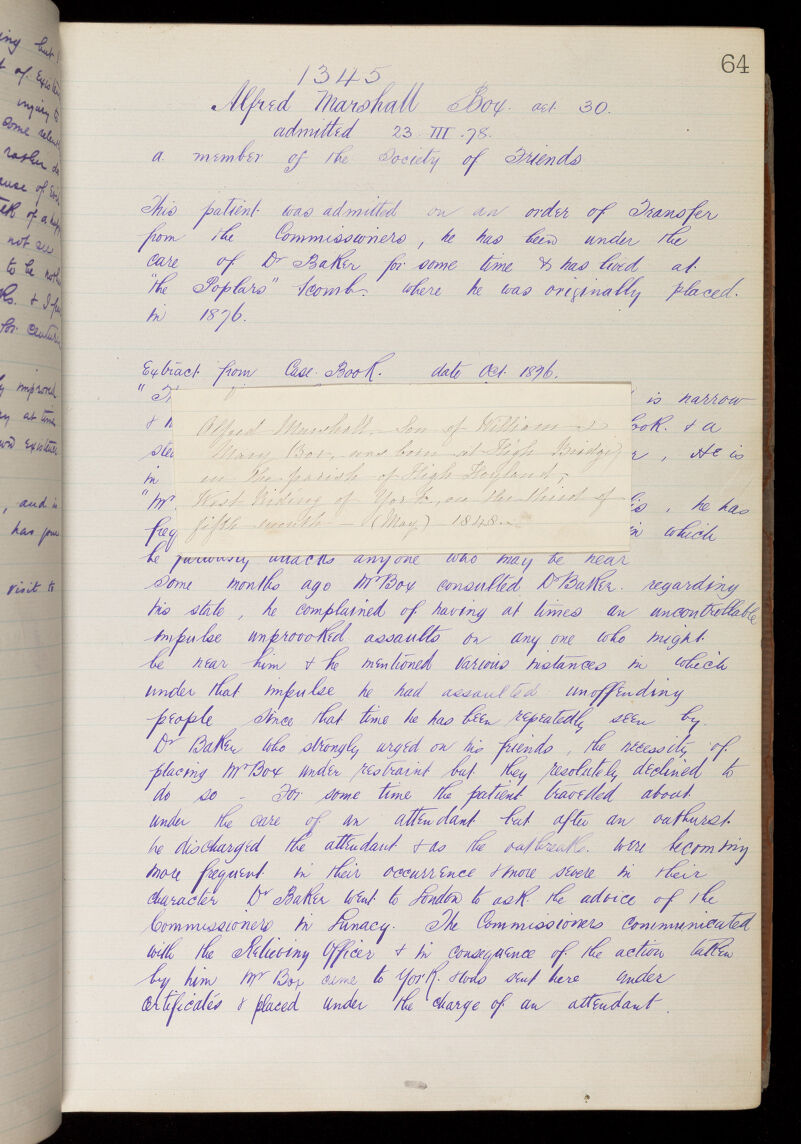 64
1345
Alfred Marshall Box. aet 30.
admitted 23. III. 78.
a member of the Society of Friends
This patient was admitted on an order of Transfer
from the Commissioners, he has been under the
care of Dr Baker for some time & has lived at
"The Poplars" Acomb where he was originally placed.
in 1876.
Extract from Case Book. date Oct. 1876.
is narrow
& a
He is
in
Alfred Marshall Son of William &
Mary Box, was born at High Bridge,
in the parish of High Hoyland,
West Riding of York, on the third of
fifth month (May) 1848.
"Mr
he has
in which
he furiously attacks anyone who may be near
some months ago Mr Box consulted Dr Baker. regarding
his state, he complained of having at times an uncontrollable
impulse unprovoked assaults on any one who might
be near him & he mentioned various instances in which
under that impulse he had assaulted unoffending
people since that time he has been repeatedly seen by
Dr Baker who strongly urged on his friends, the necessity of
placing Mr Box under restraint but they resolutely declined to
do so For some time the patient travelled about
under the care of an attendant but after an outburst
he discharged the attendant & as the outbreaks. were becoming
more frequent in their occurrence & more severe in their
character Dr Baker went to London to ask the advice of the
Commissioners in Lunacy. The Commissioners communicated
with the Relieving Officer & in consequence of the action taken
by him Mr Box came to York. & was sent here under
certificates & placed under the charge of an attendant.